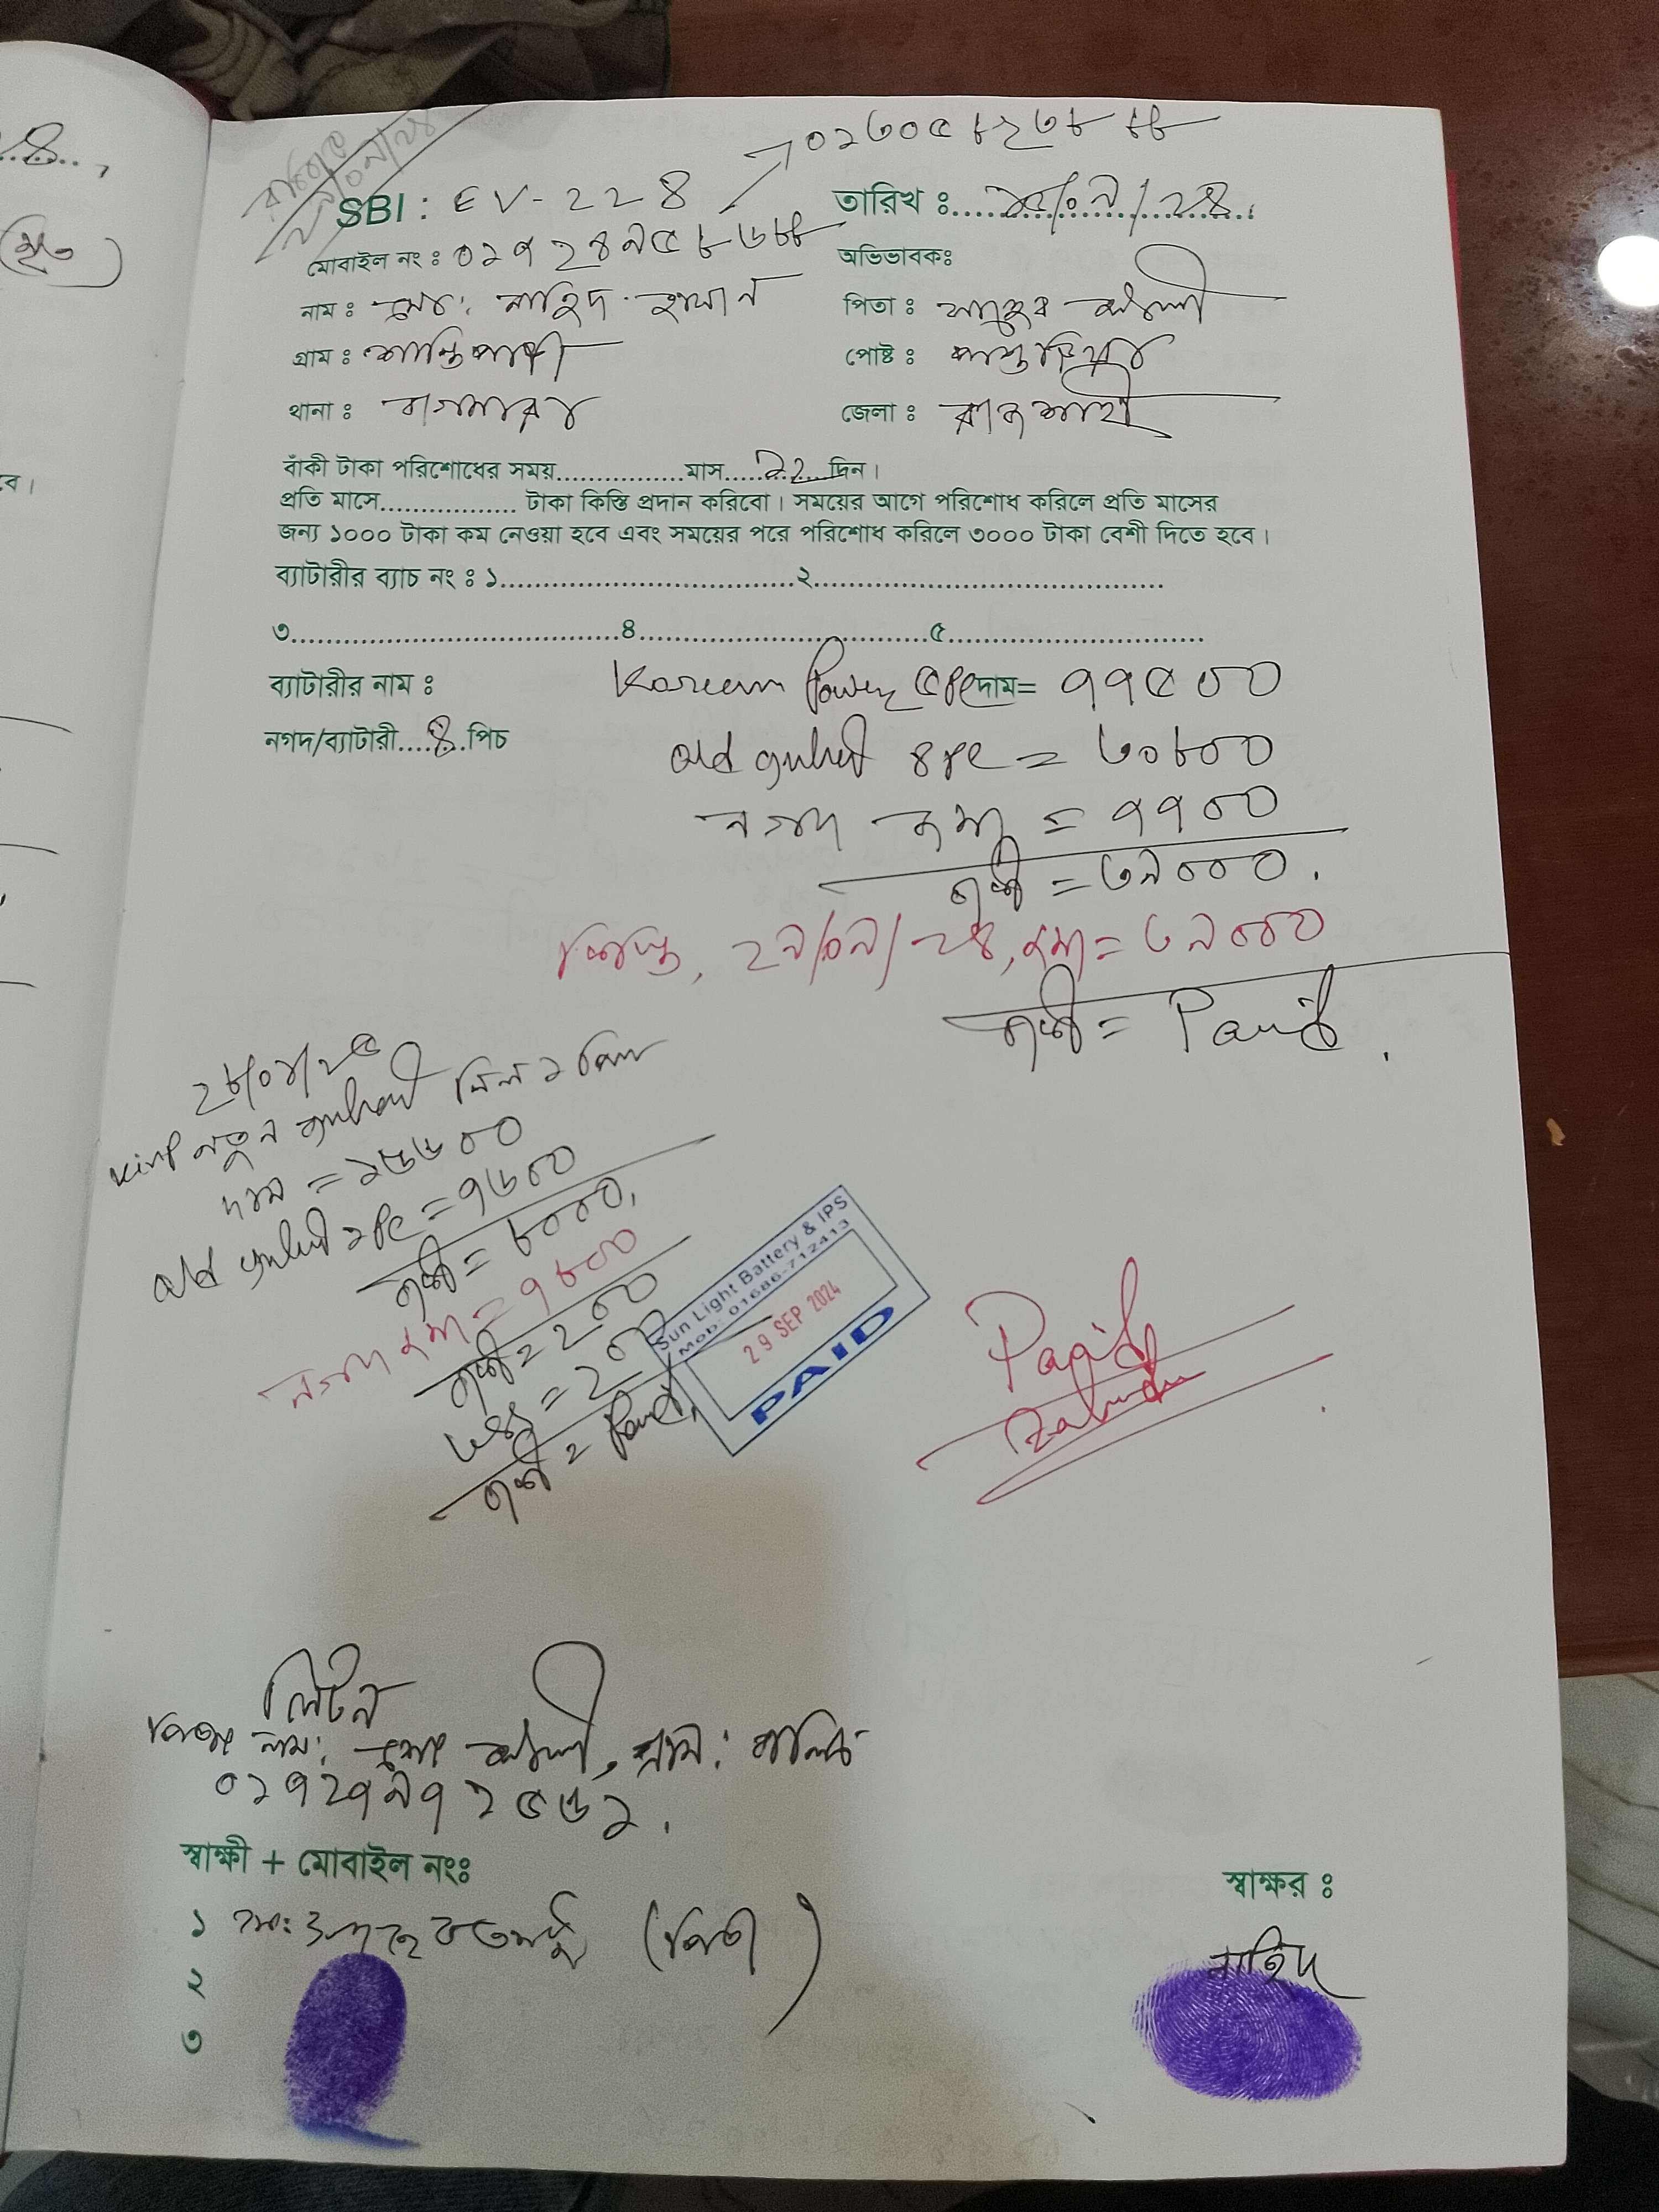 ০১৩০৫৮২৩৮৮৮
SBI : EV-228 তারিখ ঃ ১৫/০৯/২৪
মোবাইল নং ঃ ০১৭২৪৯৫৮৬৮৮ অভিভাবকঃ
নাম ঃ মোঃ নাহিদ হাসান পিতা ঃ আলী
গ্রাম ঃ শান্তিপাড়া পোষ্ট ঃ
থানা ঃ বাগমারা জেলা ঃ রাজশাহী
বাঁকী টাকা পরিশোধের সময়................মাস....১২....দিন।
প্রতি মাসে................. টাকা কিস্তি প্রদান করিবো। সময়ের আগে পরিশোধ করিলে প্রতি মাসের
জন্য ১০০০ টাকা কম নেওয়া হবে এবং সময়ের পরে পরিশোধ করিলে ৩০০০ টাকা বেশী দিতে হবে।
ব্যাটারীর ব্যাচ নং ঃ ১....................................২...........................................
৩.........................................৪...................................৫...............................
ব্যাটারীর নাম ঃ Kareem Power ৫ Pc দাম= ৭৭৫০০
নগদ/ব্যাটারী....৪..পিচ
old ব্যাটারী ৪ Pc = ৩০৮০০
নগদ জমা = ৭৭০০
বাকী = ৩৯০০০.
কিস্তি, ২৯/০৯/২৪, জমা = ৩৯০০০
বাকী = Paid.
২৮/০৪/২৫
নতুন ব্যাটারী নিল ১ পিস
দাম = ১৫৬০০
old ব্যাটারী ১ Pc = ৭৬০০
বাকী = ৮০০০.
নগদ জমা = ৭৮০০
বাকী = ২০০
= ২০০
বাকী = Paid.
Sun Light Battery & IPS
Mob: 01686-712413
29 SEP 2024
PAID
Paid
লিটন
নাম: মোঃ আলী, গ্রাম:
০১৭২৭৯৭২৫৬১.
স্বাক্ষী + মোবাইল নংঃ স্বাক্ষর ঃ
১ (পিতা) নাহিদ
২
৩